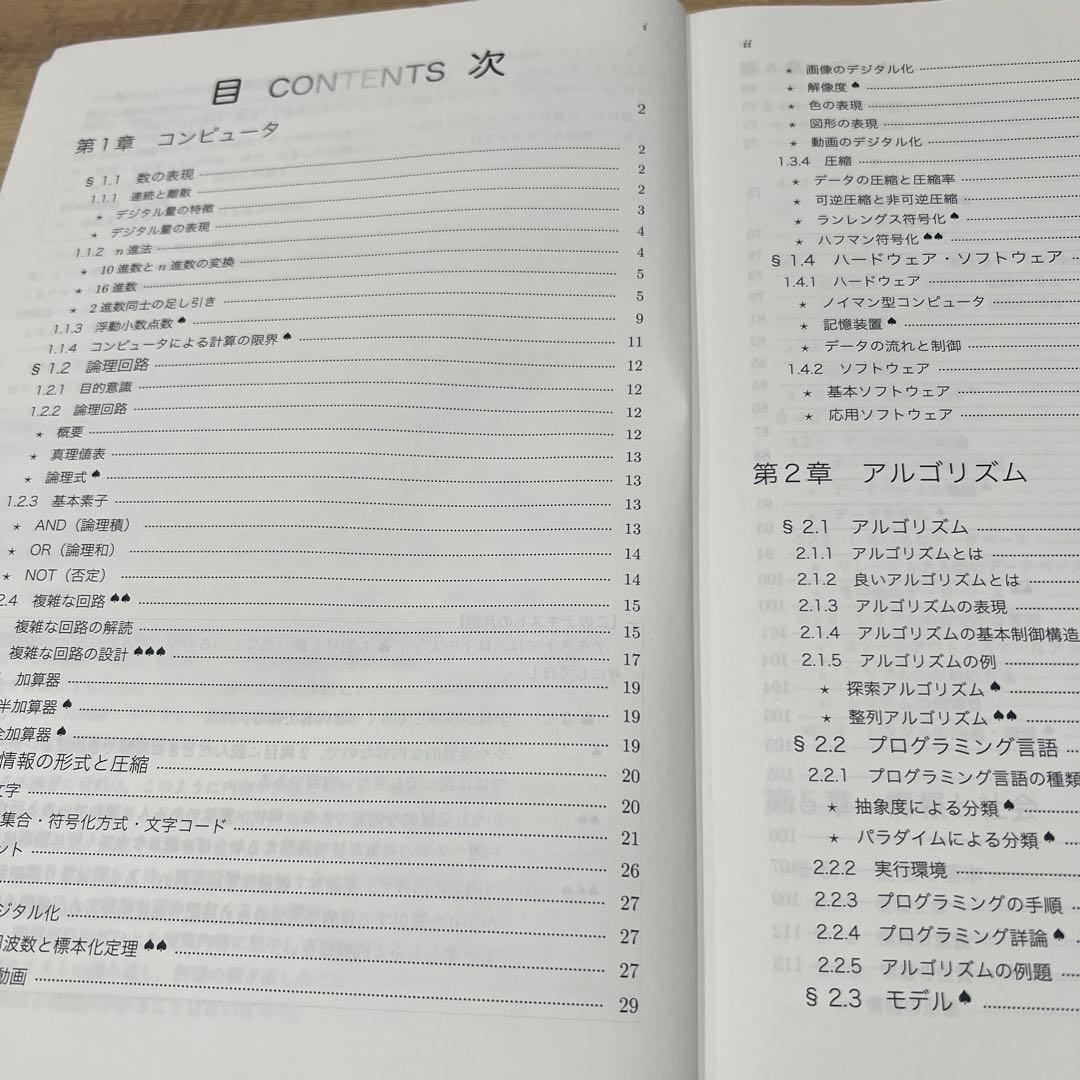 i
目 CONTENTS 次
第1章 コンピュータ 2
§1.1 数の表現 2
1.1.1 連続と離散 2
★ デジタル量の特徴 2
★ デジタル量の表現 3
1.1.2 n進法 4
★ 10進数とn進数の変換 4
★ 16進数 5
★ 2進数同士の足し引き 5
1.1.3 浮動小数点数♠ 9
1.1.4 コンピュータによる計算の限界♠ 11
§1.2 論理回路 12
1.2.1 目的意識 12
1.2.2 論理回路 12
★ 概要 12
★ 真理値表 13
★ 論理式♠ 13
1.2.3 基本素子 13
★ AND（論理積） 13
★ OR（論理和） 14
★ NOT（否定） 14
2.4 複雑な回路♠♠ 15
複雑な回路の解読 15
複雑な回路の設計♠♠♠ 17
加算器 19
半加算器♠ 19
全加算器♠ 19
情報の形式と圧縮 20
文字 20
集合・符号化方式・文字コード 21
ント 26
27
ジタル化 27
周波数と標本化定理♠♠ 27
動画 29
ii
★ 画像のデジタル化
★ 解像度♠
★ 色の表現
★ 図形の表現
★ 動画のデジタル化
1.3.4 圧縮
★ データの圧縮と圧縮率
★ 可逆圧縮と非可逆圧縮
★ ランレングス符号化♠
★ ハフマン符号化♠♠
§1.4 ハードウェア・ソフトウェア
1.4.1 ハードウェア
★ ノイマン型コンピュータ
★ 記憶装置♠
★ データの流れと制御
1.4.2 ソフトウェア
★ 基本ソフトウェア
★ 応用ソフトウェア
第2章 アルゴリズム
§2.1 アルゴリズム
2.1.1 アルゴリズムとは
2.1.2 良いアルゴリズムとは
2.1.3 アルゴリズムの表現
2.1.4 アルゴリズムの基本制御構造
2.1.5 アルゴリズムの例
★ 探索アルゴリズム♠
★ 整列アルゴリズム♠♠
§2.2 プログラミング言語
2.2.1 プログラミング言語の種類
★ 抽象度による分類♠
★ パラダイムによる分類♠
2.2.2 実行環境
2.2.3 プログラミングの手順
2.2.4 プログラミング詳論♠
2.2.5 アルゴリズムの例題
§2.3 モデル♠